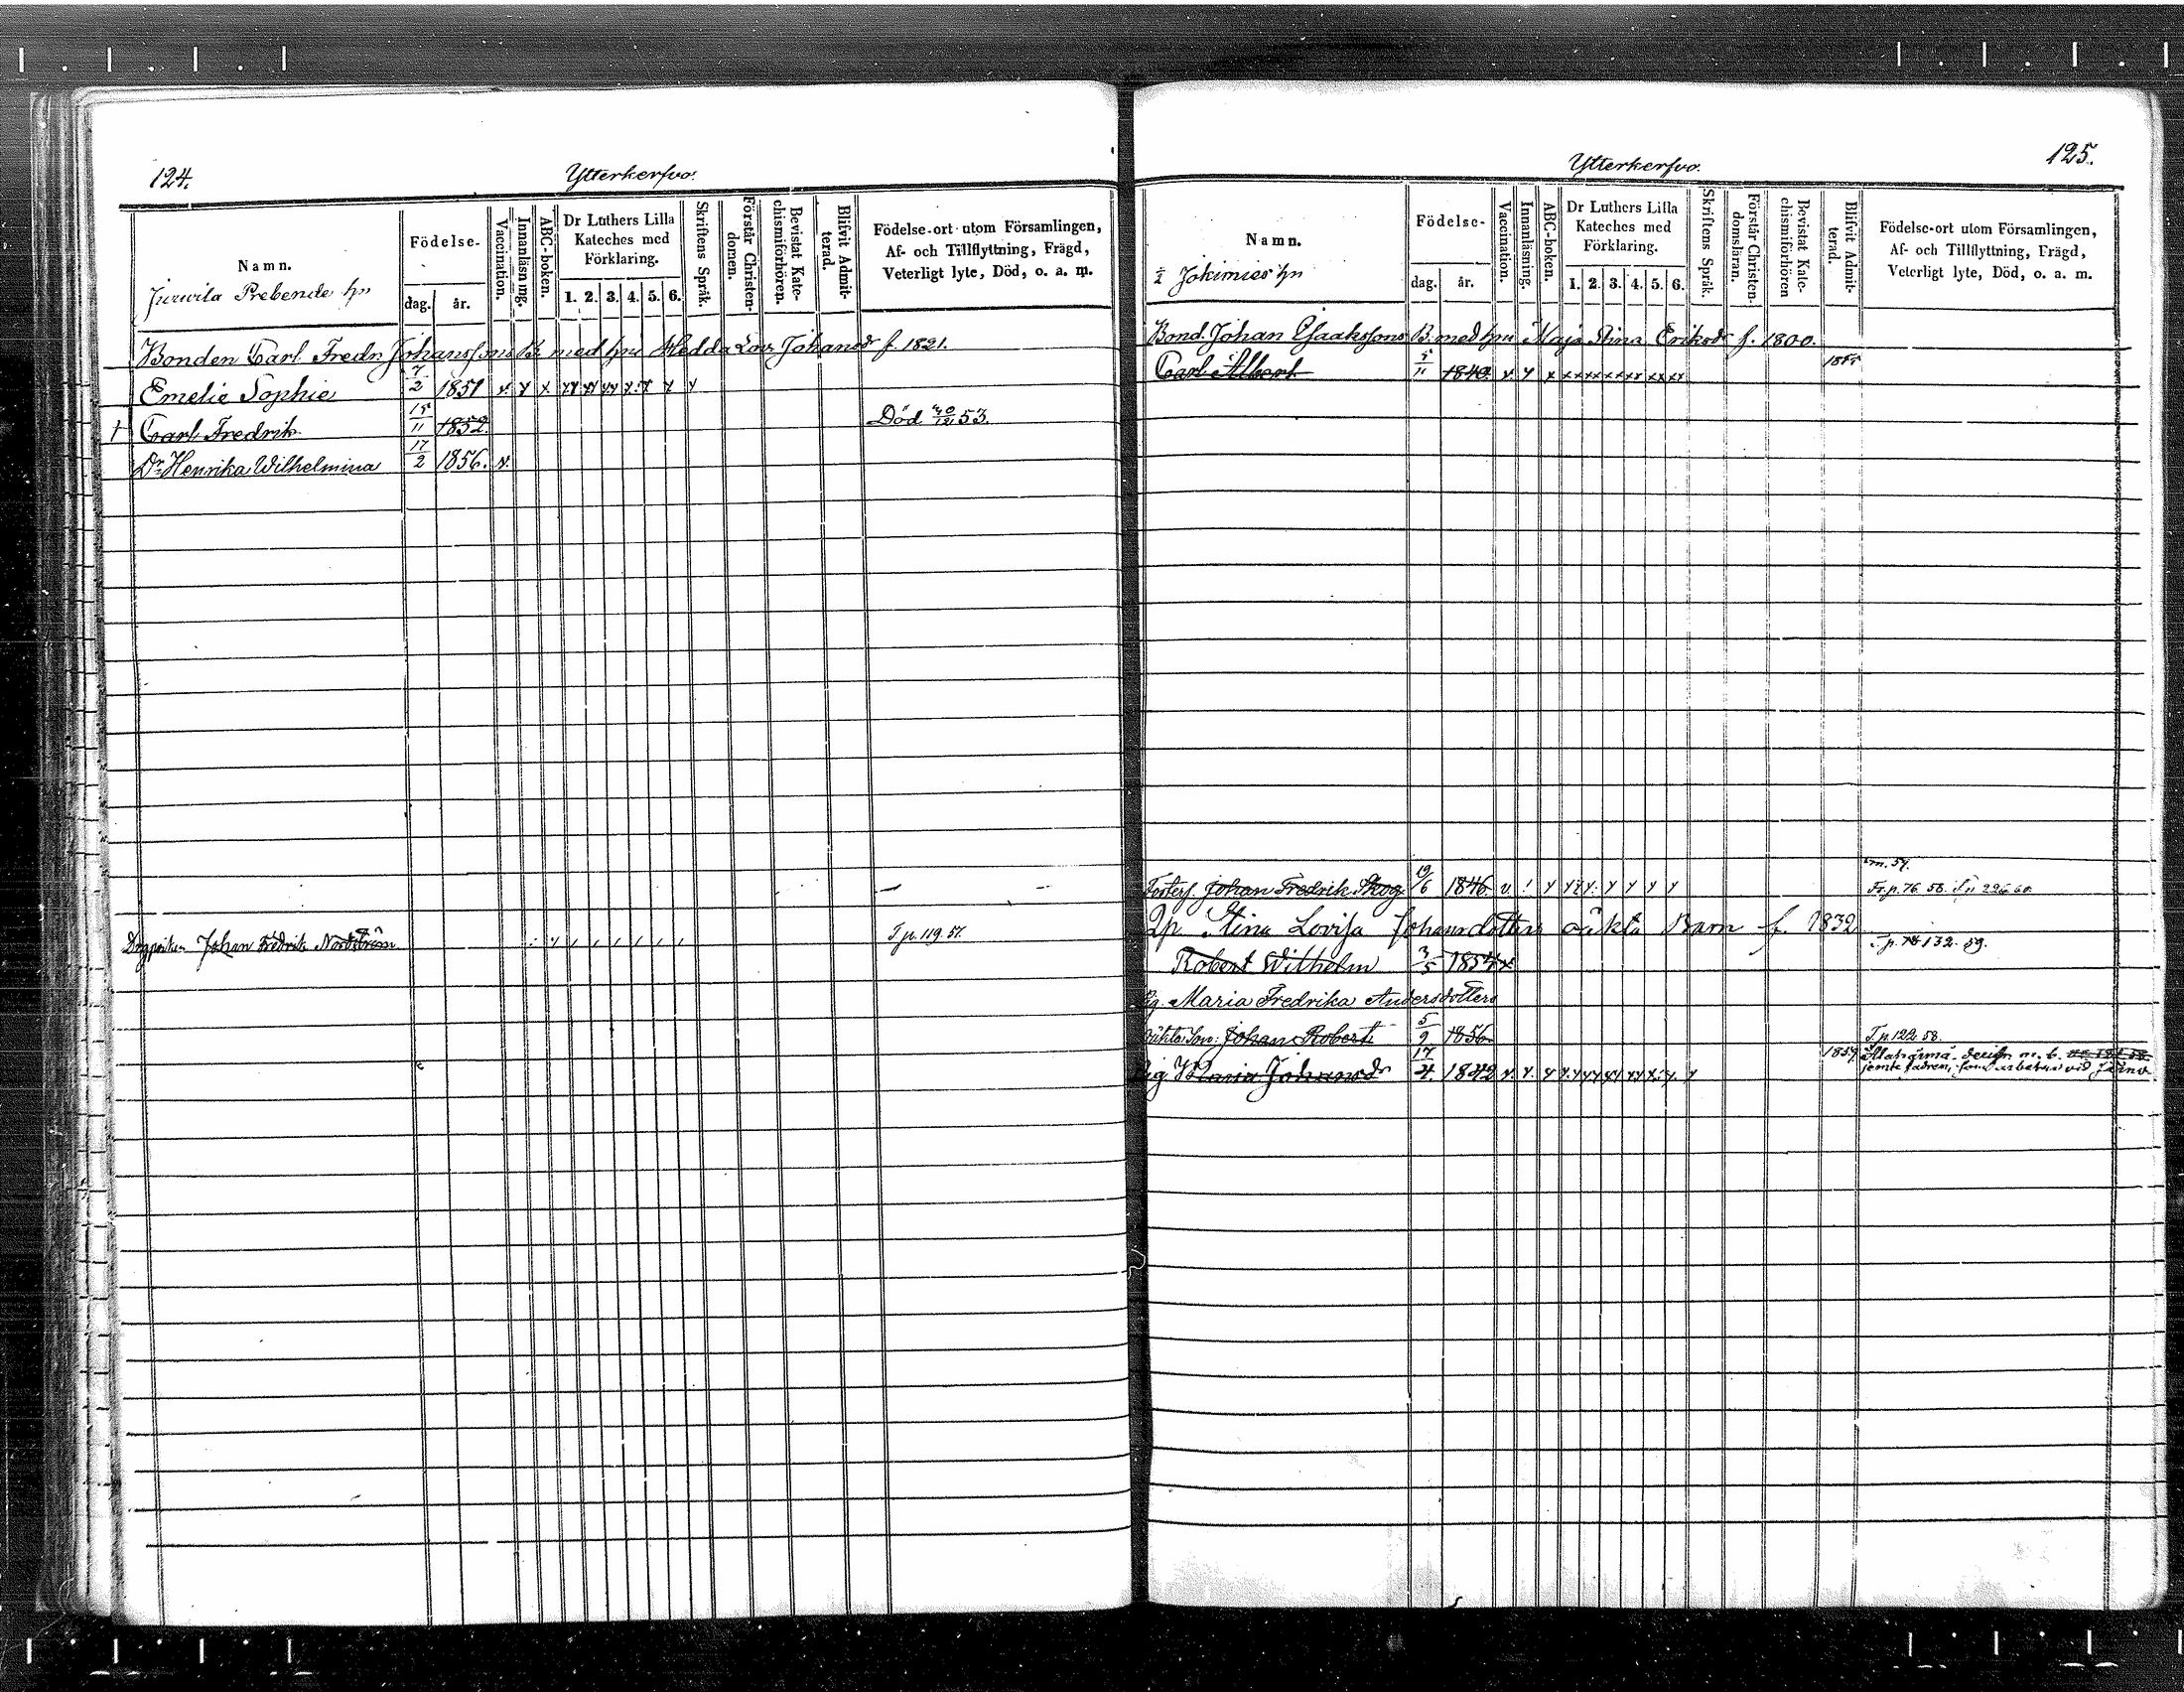 124.
Ytterkerfvo.
Namn.
Juvvila Prebende hn
Födelse-
dag.
år.
Vaccination.
Innanläsning.
ABC-boken.
Dr Luthers Lilla
Kateches med
Förklaring.
1. 2. 3. 4. 5. 6.
Skriftens Språk.
Förstår Christen-
domen.
Bevistat Kate-
chismiförhören.
Blifvit Admit-
terad.
Födelse-ort utom Församlingen,
Af- och Tillflyttning, Frägd,
Veterligt lyte, Död, o. a. m.
Bonden Carl Fredr Johanssons B. med hu Hedda Lov. Johansdr f. 1821.
Emelie Sophie 7/2 1851 x. x x xx xx xx x. x x x
† Carl Fredrik 15/11 1852. Död 30/12 53.
Dr Henrika Wilhelmina 17/2 1856. x.
Johan Fredrik Nordström T p. 119. 57.
125.
Ytterkerfvo.
Namn.
1/2 Jokimies hn
Födelse-
dag.
år.
Vaccination.
Innanläsning.
ABC-boken.
Dr Luthers Lilla
Kateches med
Förklaring.
1. 2. 3. 4. 5. 6.
Skriftens Språk.
Förstår Christen-
domsläran.
Bevistat Kate-
chismiförhören
Blifvit Admit-
terad.
Födelse-ort utom Församlingen,
Af- och Tillflyttning, Frägd,
Veterligt lyte, Död, o. a. m.
Bond. Johan Esaakssons B. med hu Maja Stina Eriksdr f. 1800.
Carl Albert 5/11 1840. x x x xx xx xx xx xx xx 1855
m. 57.
Fosters. Johan Fredrik Skog 19/6 1846 v. ! x x x x x x x Fr. p. 76. 58.
Qp Stina Lovisa Johansdotters oäkta Barn f. 1832
Robert Wilhelm 3/5 1854 x T. p. 132. 59.
Pig. Maria Fredrika Andersdotters
oäkta Son: Johan Robert 5/9 1856 T. p. 122 58.
Pig Maria Johansdr 17/4. 1842 x. x. x x. x xx xx xx x. x. x 1859